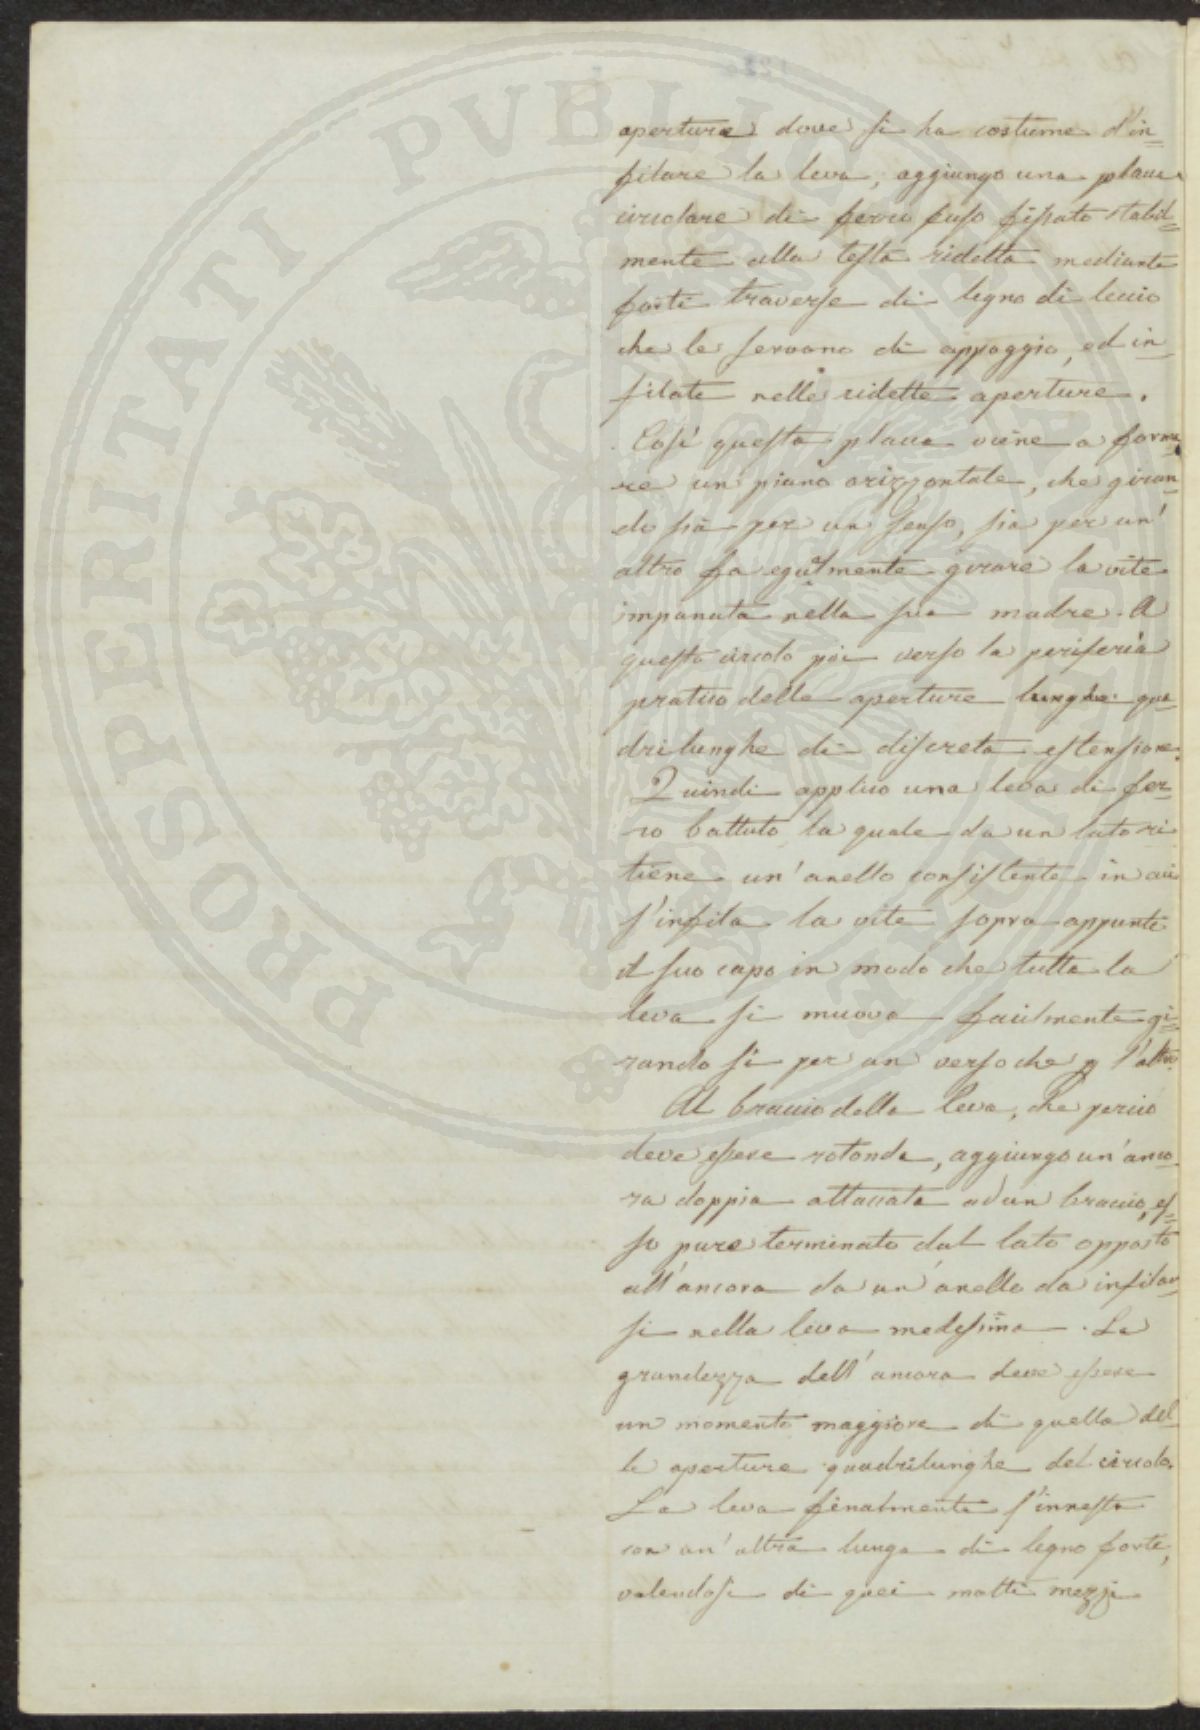 aperture dove si ha costume d'in=
filare la leva, aggiungo una placca
circolare di ferro fuso fissata stabil=
mente alla testa ridetta mediante
forti traverse di legno di leccio
che le servono di appoggio, ed in=
filate nelle ridette aperture.
Così questa placca viene a forma
re un piano orizzontale, che giran=
do sia per un senso, sia per un'
altro fa egualmente girare la vite
impanata nella sua madre. A
questo circolo poi verso la periferia
pratico delle aperture lunghe qua=
drilunghe di discreta estensione.
Quindi applico una leva di fer=
ro battuto la quale da un lato ri
tiene un'anello consistente in cui
s'infila la vite sopra appunto
il suo capo in modo che tutta la
leva si muova facilmente gi=
rando sì per un verso che p l'altro.
Al braccio della leva, che perciò
deve essere rotonda, aggiungo un'anco=
ra doppia attaccata ad un braccio, es=
so pure terminato dal lato opposto
all'ancora da un'anello da infilar=
si nella leva medesima. La
grandezza dell'ancora deve essere
un momento maggiore di quella del=
le aperture quadrilunghe del circolo.
La leva finalmente s'innesta
con un'altra lunga di legno forte,
valendosi di quei molti mezzi
PROSPERITATI PUBLICAE